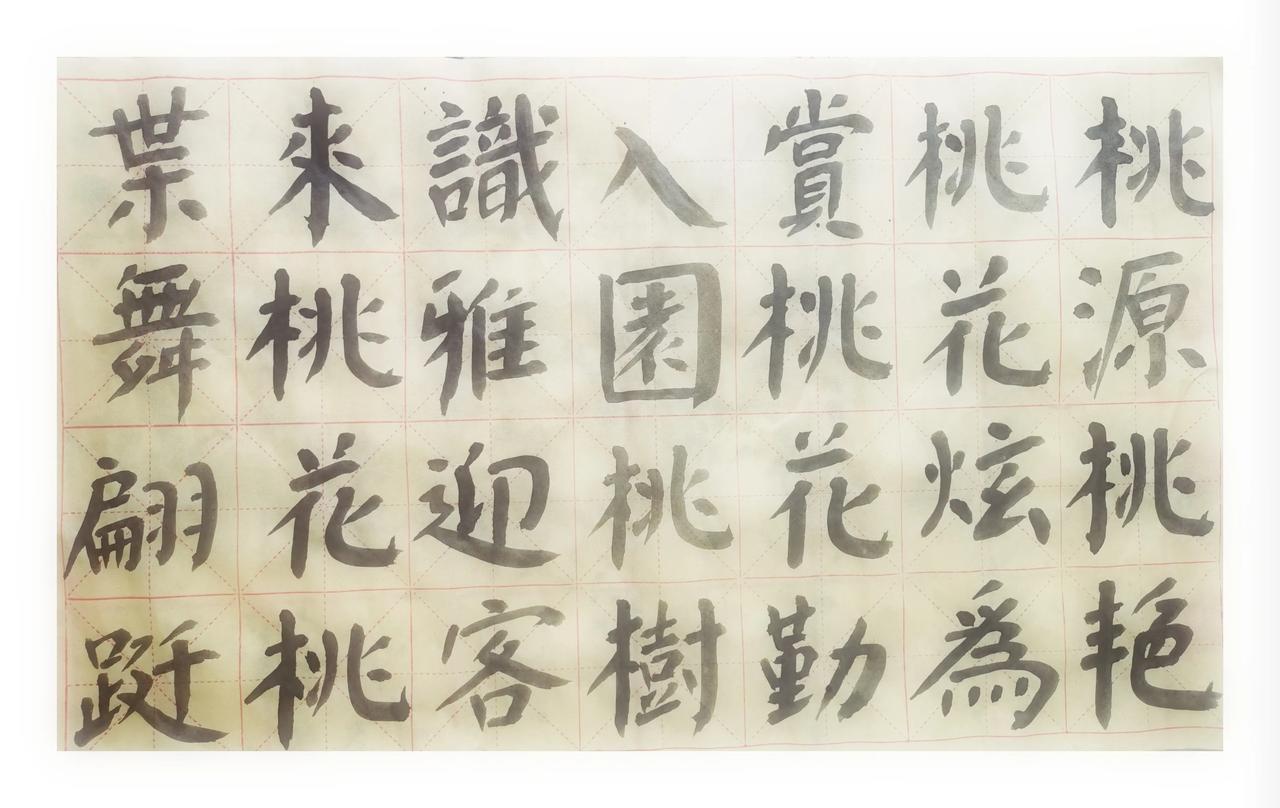 桃源桃艳
桃花炫為
賞桃花勤
入園桃樹
識雅迎客
来桃花桃
枼舞翩跹